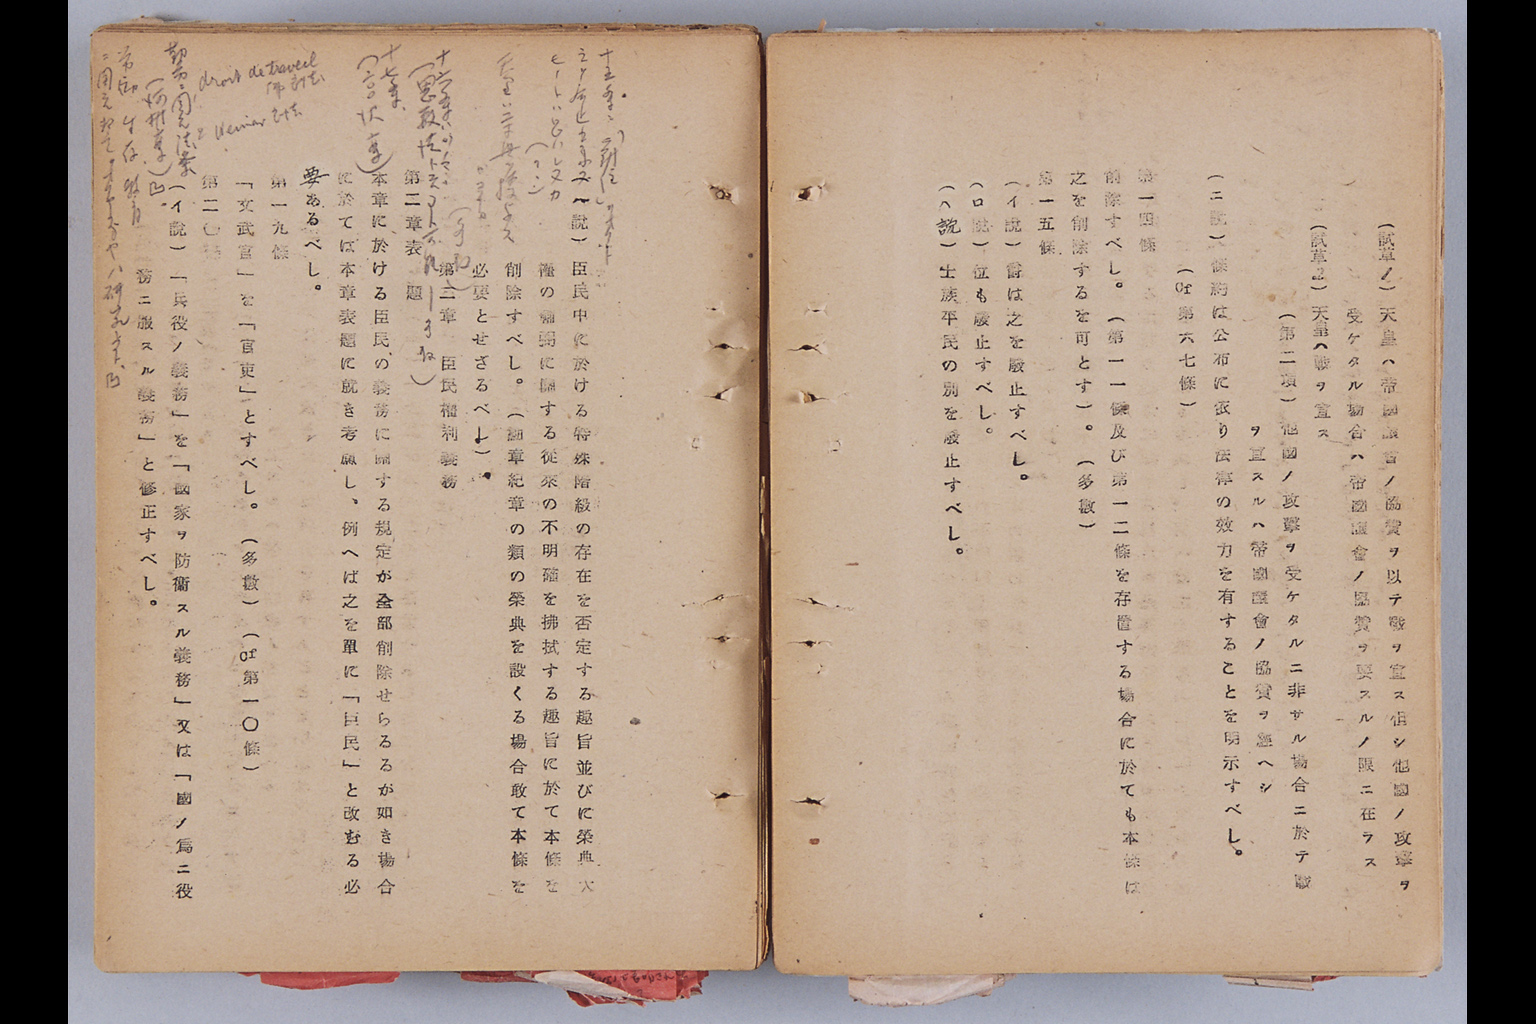 (試草1)天皇ハ帝國議會ノ協賛ヲ以テ戰ヲ宣ス但シ他國ノ攻撃ヲ
受ケタル場合ハ帝國議會ノ協賛ヲ要スルノ限ニ在ラス
(試草2)天皇ハ戰ヲ宣ス
(第二項)他國ノ攻撃ヲ受ケタルニ非サル場合ニ於テ戰
ヲ宣スルハ帝國議會ノ協賛ヲ經ヘシ
(ニ説)條約は公布に依り法律の效力を有することを明示すべし。
(cf 第六七條)
第一四條
削除すべし。(第一一條及び第一二條を存置する場合に於ても本條は
之を削除するを可とす)。(多數)
第一五條
(イ説)爵は之を廢止すべし。
(ロ説)位も廢止すべし。
(ハ説)士族平民の別を廢止すべし。
十五條ニ
説)臣民中に於ける特殊階級の存在を否定する趣旨並びに榮典大
權の輔弼に關する從來の不明確を拂拭する趣旨に於て本條を
削除すべし。(勳章紀章の類の榮典を設くる場合敢て本條を
必要とせざるべし)。
第二章 臣民權利義務
第二章表題
本章に於ける臣民の義務に關する規定が全部削除せらるるが如き場合
に於ては本章表題に就き考慮し、例へば之を單に「臣民」と改むる必
要あるべし。
十七條
第一九條
「文武官」を「官吏」とすべし。(多數)(cf 第一〇條)
第二〇條
(イ説)「兵役ノ義務」を「國家ヲ防衞スル義務」又は「國ノ爲ニ役
務ニ服スル義務」と修正すべし。
droit de travail
Weimar